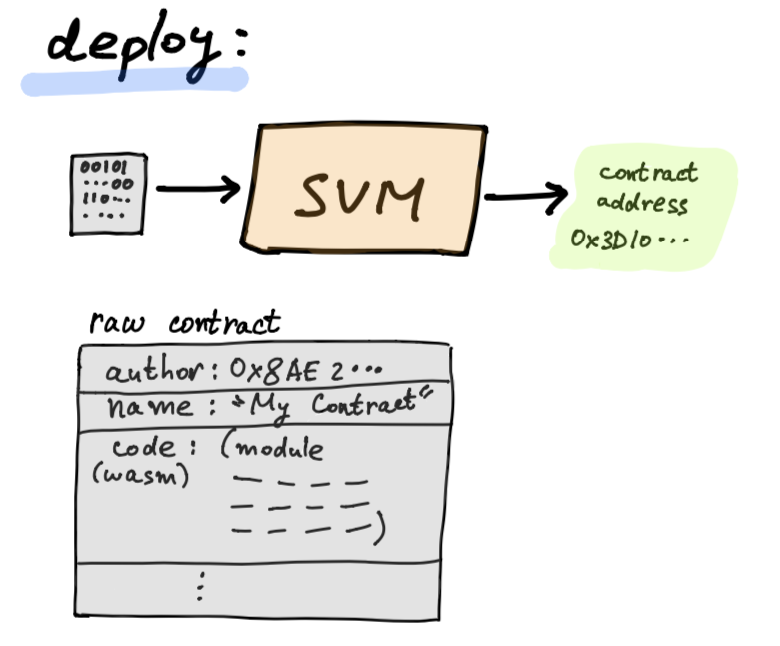 deploy:
00101
...00
110...
....
SVM
contract
address
0x3D10...
raw contract
author: 0x8AE2...
name: "My Contract"
code: (module
(wasm) — — — —
— — — —
— — — —)
⋮